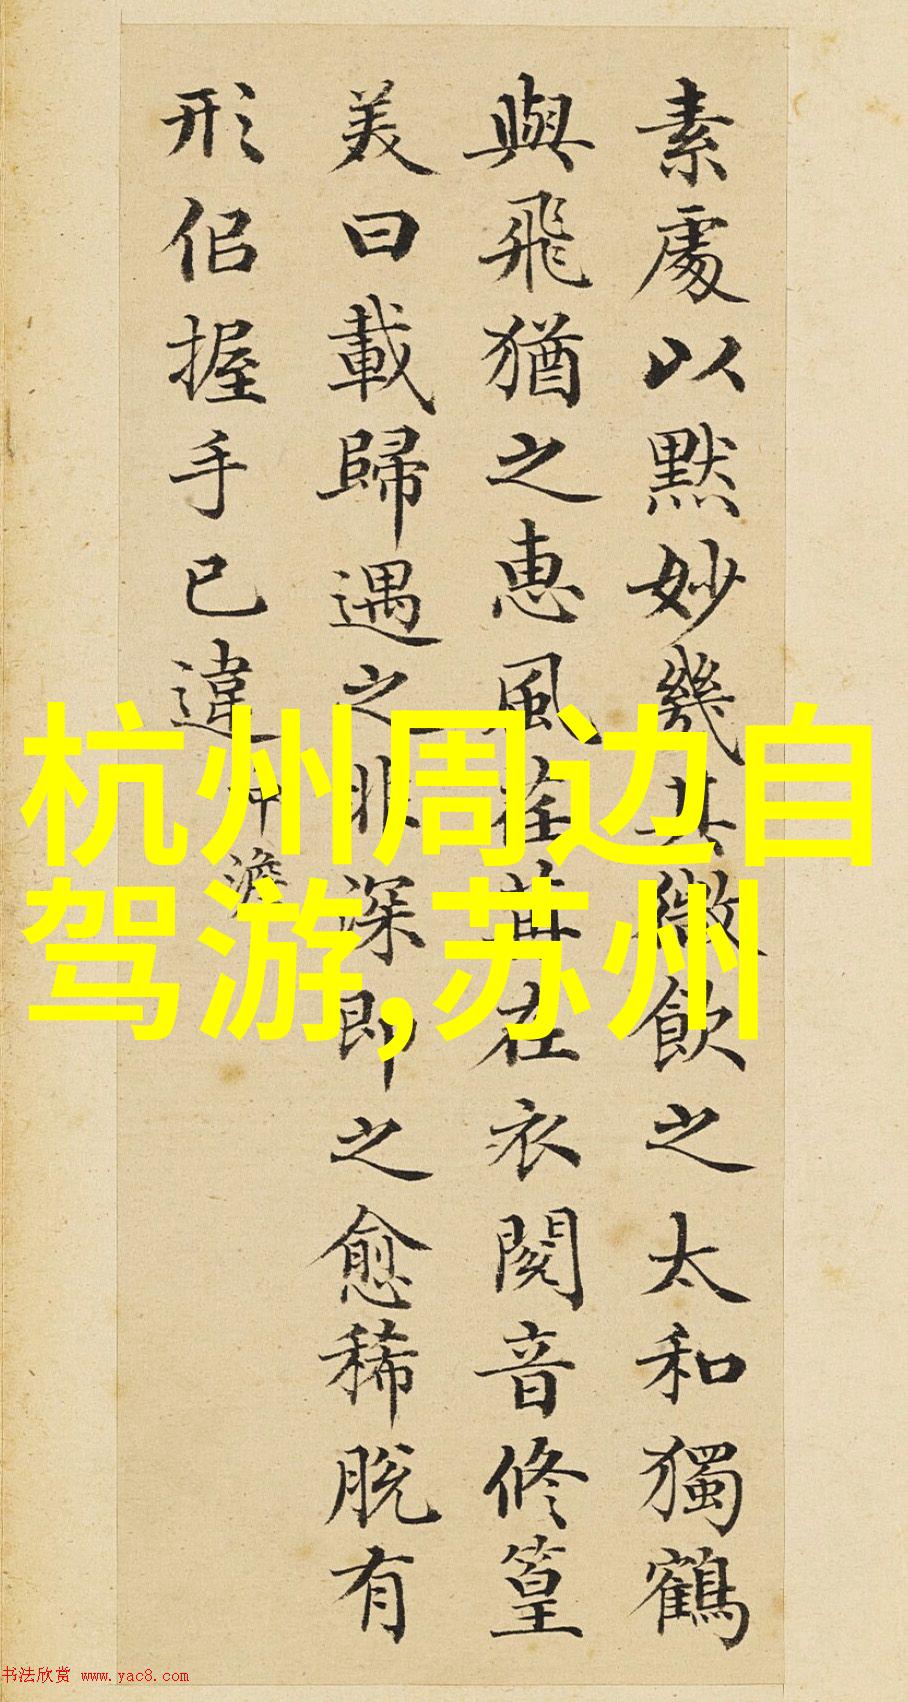 素處以默妙幾其微飲之太和獨鶴
與飛猶之惠風荏苒在衣閱音修篁
美曰載歸遇之非深即之愈稀脫有
形佀握手已違
冲澹
杭州周边自
驾游,苏州
书法欣赏 www.yac8.com